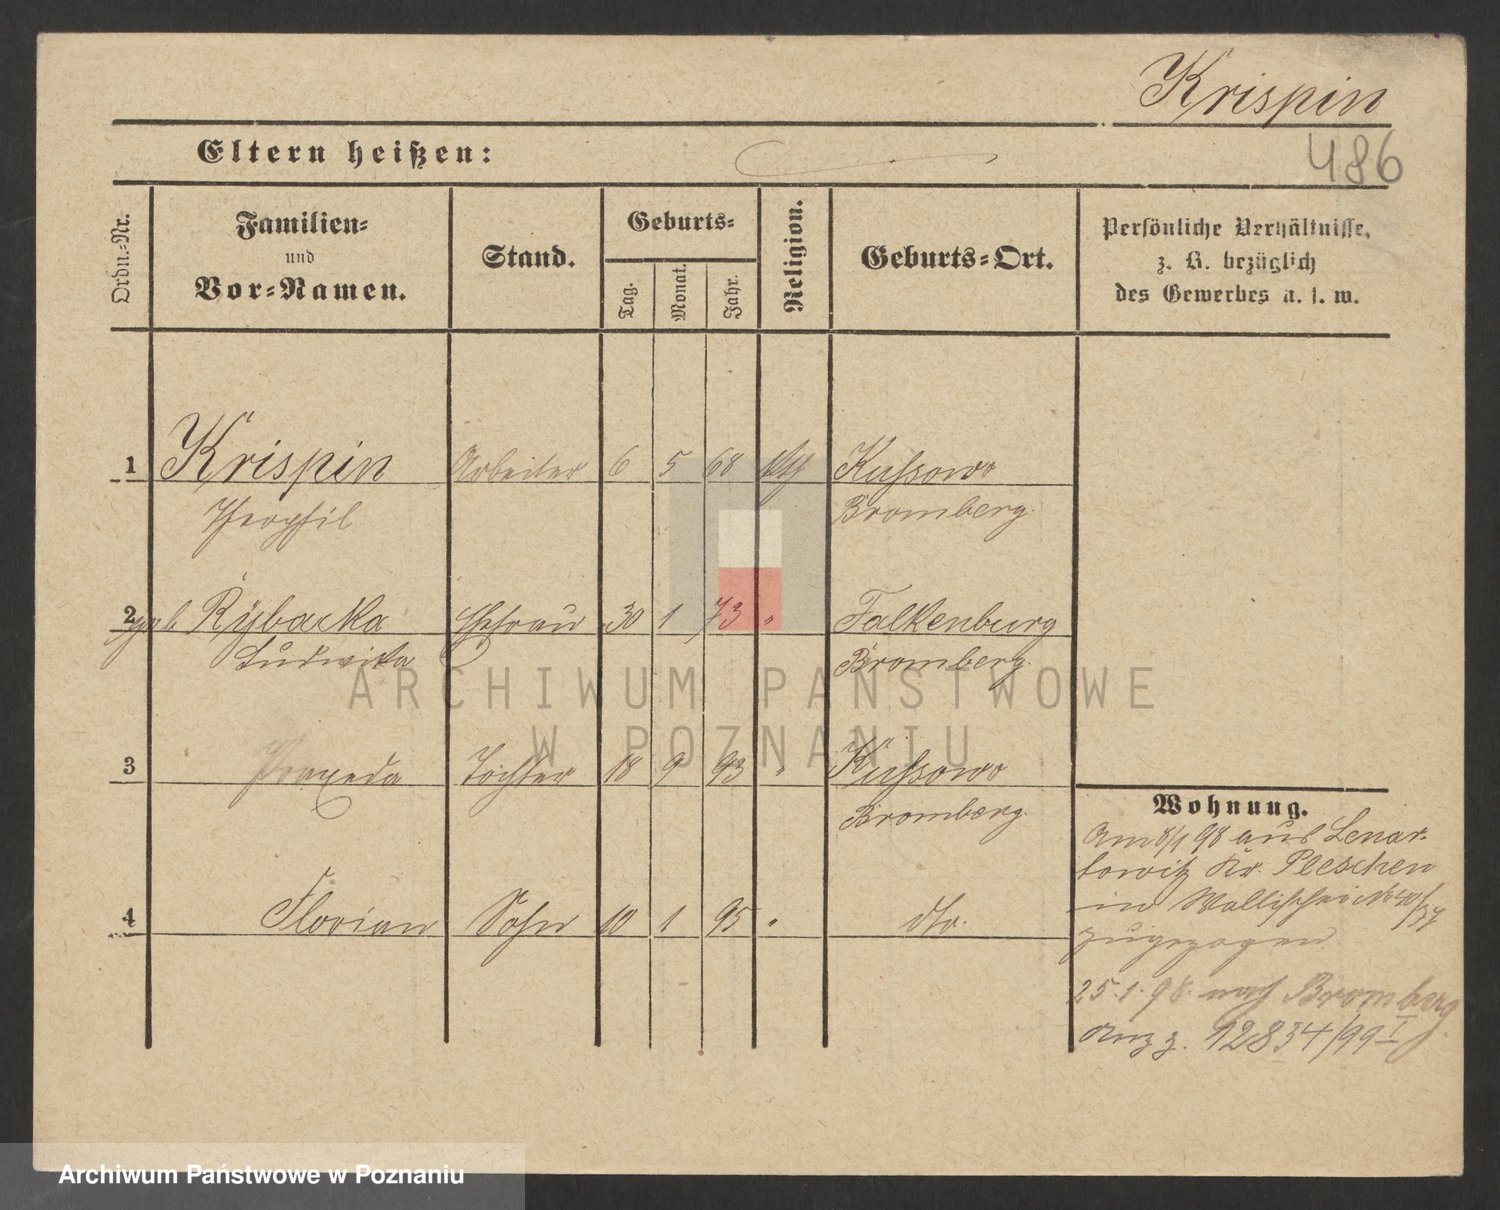 Krispin
486
Eltern heißen:
Ordn.-Nr.
Familien-
und
Vor-Namen.
Stand.
Geburts-
Tag.
Monat.
Jahr.
Religion.
Geburts-Ort.
Persönliche Verhältnisse,
z. B. bezüglich
des Gewerbes u. s. w.
1 Krispin Arbeiter 6 5 68 Kussowo
Theophil Bromberg.
2 geb. Rybacka Ehefrau 30 1 73 " Falkenburg
Ludwika Bromberg.
3 Praxeda Tochter 18 9 93 " Kussowo
Bromberg.
4 Florian Sohn 10 1 95 " dto.
Wohnung.
Am 8/1 98 aus Lenar-
towitz Kr. Pleschen
in
zugezogen
25.1.98. nach Bromberg
Anz z. 12834/99 I
ARCHIWUM PAŃSTWOWE
W POZNANIU
Archiwum Państwowe w Poznaniu